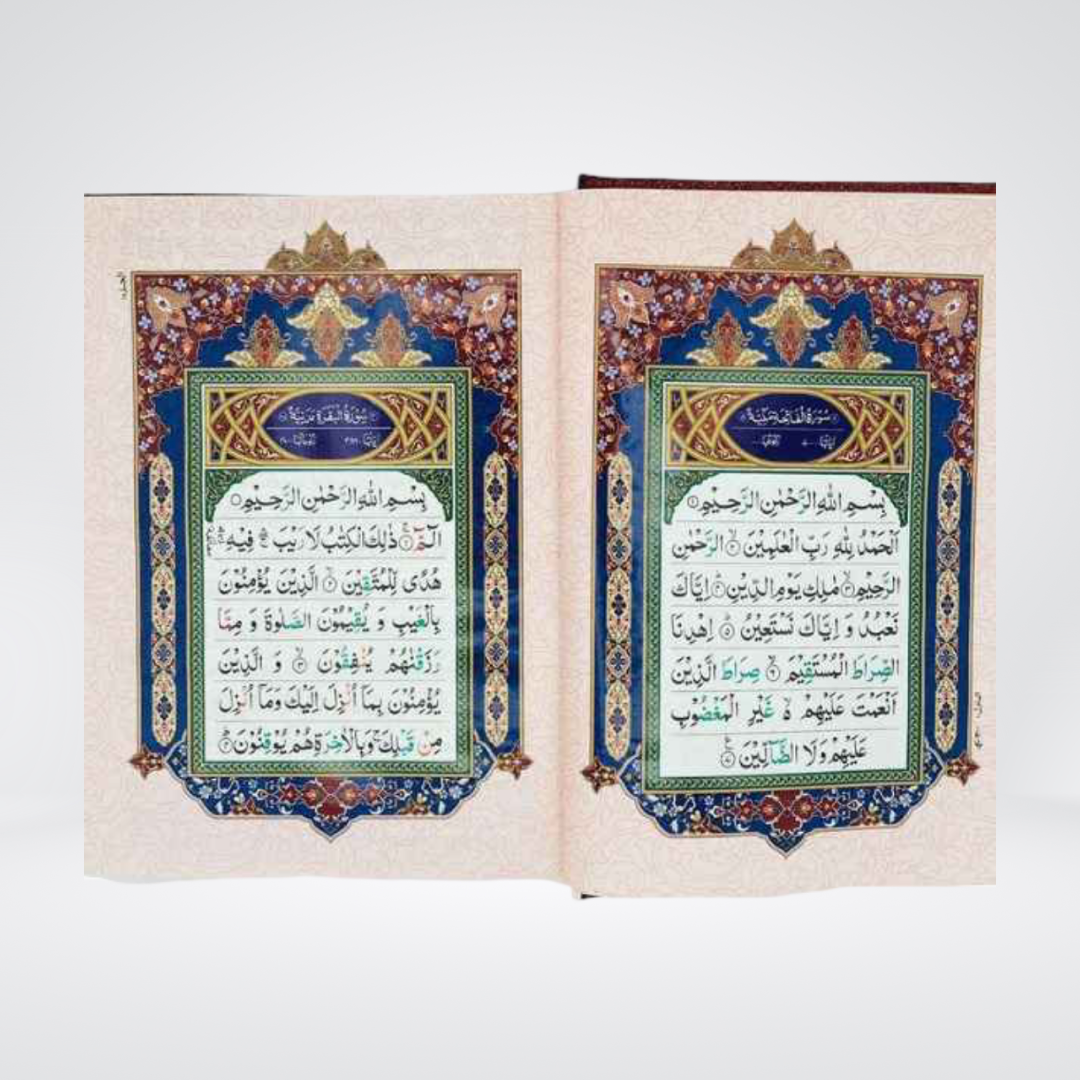 سُوْرَةُ الْفَاتِحَةِ مَكِّيَّةٌ
بِسْمِ اللّٰهِ الرَّحْمٰنِ الرَّحِيْمِ ۝١
اَلْحَمْدُ لِلّٰهِ رَبِّ الْعٰلَمِيْنَ ۝٢ الرَّحْمٰنِ
الرَّحِيْمِ ۝٣ مٰلِكِ يَوْمِ الدِّيْنِ ۝٤ اِيَّاكَ
نَعْبُدُ وَ اِيَّاكَ نَسْتَعِيْنُ ۝٥ اِهْدِنَا
الصِّرَاطَ الْمُسْتَقِيْمَ ۝٦ صِرَاطَ الَّذِيْنَ
اَنْعَمْتَ عَلَيْهِمْ ۵ غَيْرِ الْمَغْضُوْبِ
عَلَيْهِمْ وَلَا الضَّآلِّيْنَ ۝٧
سُوْرَةُ الْبَقَرَةِ مَدَنِيَّةٌ
بِسْمِ اللّٰهِ الرَّحْمٰنِ الرَّحِيْمِ ۝
الٓمّٓ ۝١ ذٰلِكَ الْكِتٰبُ لَا رَيْبَ ۛ فِيْهِ ۛ
هُدًى لِّلْمُتَّقِيْنَ ۝٢ الَّذِيْنَ يُؤْمِنُوْنَ
بِالْغَيْبِ وَ يُقِيْمُوْنَ الصَّلٰوةَ وَ مِمَّا
رَزَقْنٰهُمْ يُنْفِقُوْنَ ۝٣ وَ الَّذِيْنَ
يُؤْمِنُوْنَ بِمَآ اُنْزِلَ اِلَيْكَ وَمَآ اُنْزِلَ
مِنْ قَبْلِكَ ۚ وَبِالْاٰخِرَةِ هُمْ يُوْقِنُوْنَ ۝٤